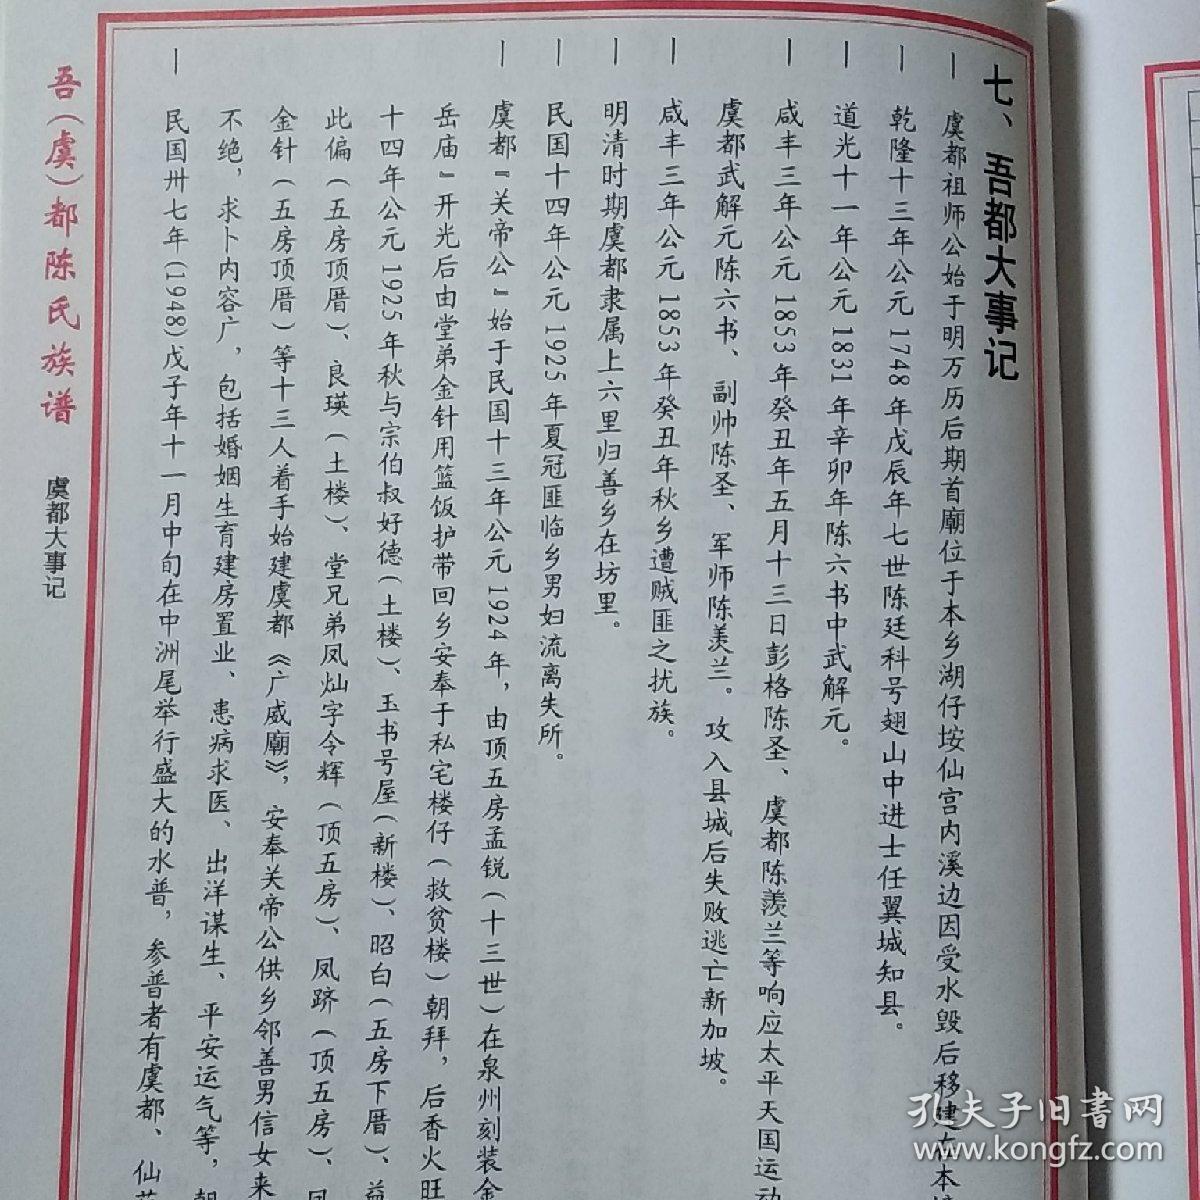 七、吾都大事记
一 虞都祖师公始于明万历后期首廟位于本乡湖仔垵仙宫内溪边因受水毁后移建在本
一 乾隆十三年公元1748年戊辰年七世陈廷科号翅山中进士任翼城知县。
一 道光十一年公元1831年辛卯年陈六书中武解元。
一 咸丰三年公元1853年癸丑年五月十三日彭格陈圣、虞都陈羡兰等响应太平天国运动
虞都武解元陈六书、副帅陈圣、军师陈羡兰。攻入县城后失败逃亡新加坡。
一 咸丰三年公元1853年癸丑年秋乡遭贼匪之扰族。
一 明清时期虞都隶属上六里归善乡在坊里。
一 民国十四年公元1925年夏冠匪临乡男妇流离失所。
一 虞都『关帝公』始于民国十三年公元1924年，由顶五房孟锐（十三世）在泉州刻装金
岳庙』开光后由堂弟金针用篮饭护带回乡安奉于私宅楼仔（救贫楼）朝拜，后香火旺
十四年公元1925年秋与宗伯叔好德（土楼）、玉书号屋（新楼）、昭白（五房下厝）、益
此偏（五房顶厝）、良瑛（土楼）、堂兄弟凤灿字令辉（顶五房）、凤跻（顶五房）、凤
金针（五房顶厝）等十三人着手始建虞都《广威廟》，安奉关帝公供乡邻善男信女来
不绝，求卜内容广，包括婚姻生育建房置业、患病求医、出洋谋生、平安运气等，朝
一 民国卅七年(1948)戊子年十一月中旬在中洲尾举行盛大的水普，参普者有虞都、仙
吾（虞）都陈氏族谱
虞都大事记
孔夫子旧书网
www.kongfz.com